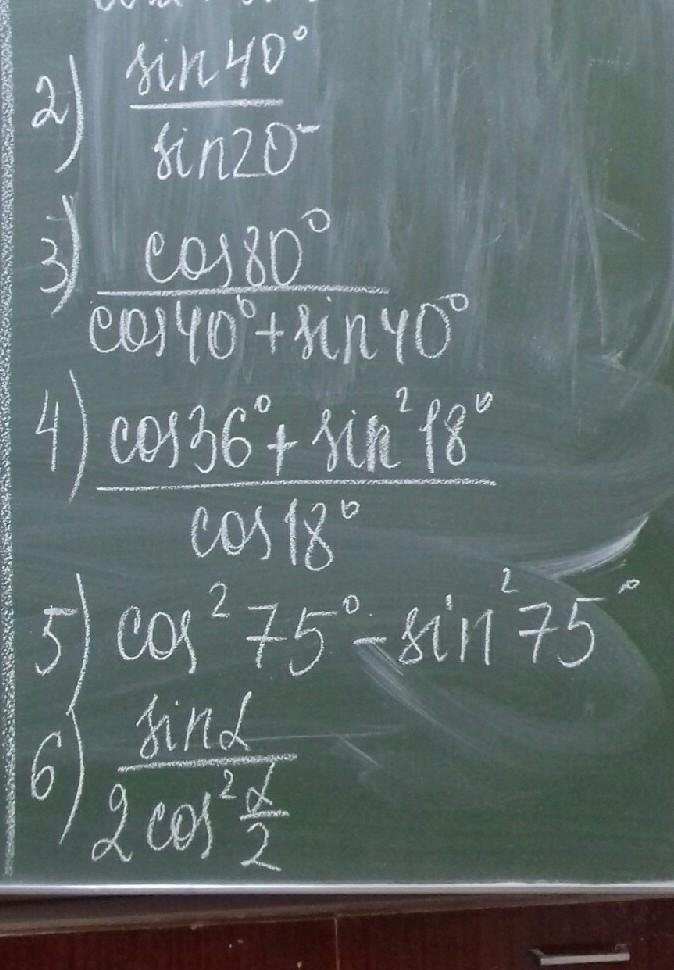 2) sin40°
sin20°
3) cos80°
cos40°+sin40°
4) cos36°+sin²18°
cos18°
5) cos²75°-sin²75°
6) sinα
2cos²α/2